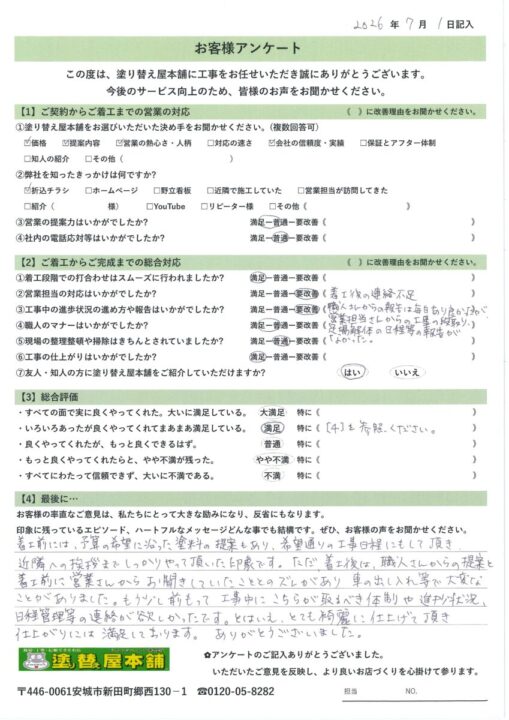 2026 年 7 月 1 日記入
お客様アンケート
この度は、塗り替え屋本舗に工事をお任せいただき誠にありがとうございます。
今後のサービス向上のため、皆様のお声をお聞かせください。
【1】ご契約からご着工までの営業の対応 （ ）に改善理由をお聞かせください。
①塗り替え屋本舗をお選びいただいた決め手をお聞かせください。(複数回答可)
☑価格 ☑提案内容 ☑営業の熱心さ・人柄 □対応の速さ ☑会社の信頼度・実績 □保証とアフター体制
□知人の紹介 □その他（ ）
②弊社を知ったきっかけは何ですか?
☑折込チラシ □ホームページ □野立看板 □近隣で施工していた □営業担当が訪問してきた
□紹介（ 様） □YouTube □リピーター様 □その他《 》
③営業の提案力はいかがでしたか? 満足ー普通ー要改善《 》
④社内の電話応対等はいかがでしたか? 満足ー普通ー要改善《 》
【2】ご着工からご完成までの総合対応 （ ）に改善理由をお聞かせください。
①着工段階での打合わせはスムーズに行われましたか? 満足ー普通ー要改善《 》
②営業担当の対応はいかがでしたか? 満足ー普通ー要改善《 着工後の連絡不足 》
③工事中の進歩状況の進め方や報告はいかがでしたか? 満足ー普通ー要改善《 職人さんからの報告は毎日あり良かったが、
営業担当さんからの工程の段取り、
④職人のマナーはいかがでしたか? 満足ー普通ー要改善《 足場解体の日程等の報告が
⑤現場の整理整頓や掃除はきちんとされていましたか? 満足ー普通ー要改善《 なかった。 》
⑥工事の仕上がりはいかがでしたか? 満足ー普通ー要改善《 》
⑦友人・知人の方に塗り替え屋本舗をご紹介していただけますか? はい いいえ
【3】総合評価
・すべての面で実に良くやってくれた。大いに満足している。 大満足 特に《 》
・いろいろあったが良くやってくれてまあまあ満足している。 満足 特に《 [4]を参照ください。 》
・良くやってくれたが、もっと良くできるはず。 普通 特に《 》
・もっと良くやってくれたらと、やや不満が残った。 やや不満 特に《 》
・すべてにわたって信頼できず、大いに不満である。 不満 特に《 》
【4】最後に…
お客様の率直なご意見は、私たちにとって大きな励みになり、反省にもなります。
印象に残っているエピソード、ハートフルなメッセージどんな事でも結構です。ぜひ、お客様の声をお聞かせください。
着工前には、予算の希望に沿った塗料の提案もあり、希望通りの工事日程にもして頂き
近隣への挨拶までしっかりやって頂いた印象です。ただ着工後は、職人さんからの提案と
着工前に営業さんからお聞きしていたこととのズレがあり 車の出し入れ等で大変な
ことがありました。もう少し前もって工事中にこちらが取るべき体制や進捗状況、
日程管理等の連絡が欲しかったです。とはいえ、とても綺麗に仕上げて頂き
仕上がりには満足しております。 ありがとうございました。
塗替え屋本舗
✿アンケートのご記入ありがとうございました。
いただいたご意見を反映し、より良いお店づくりを心掛けて参ります。
〒446-0061安城市新田町郷西130－1 ☎0120-05-8282
担当 NO.